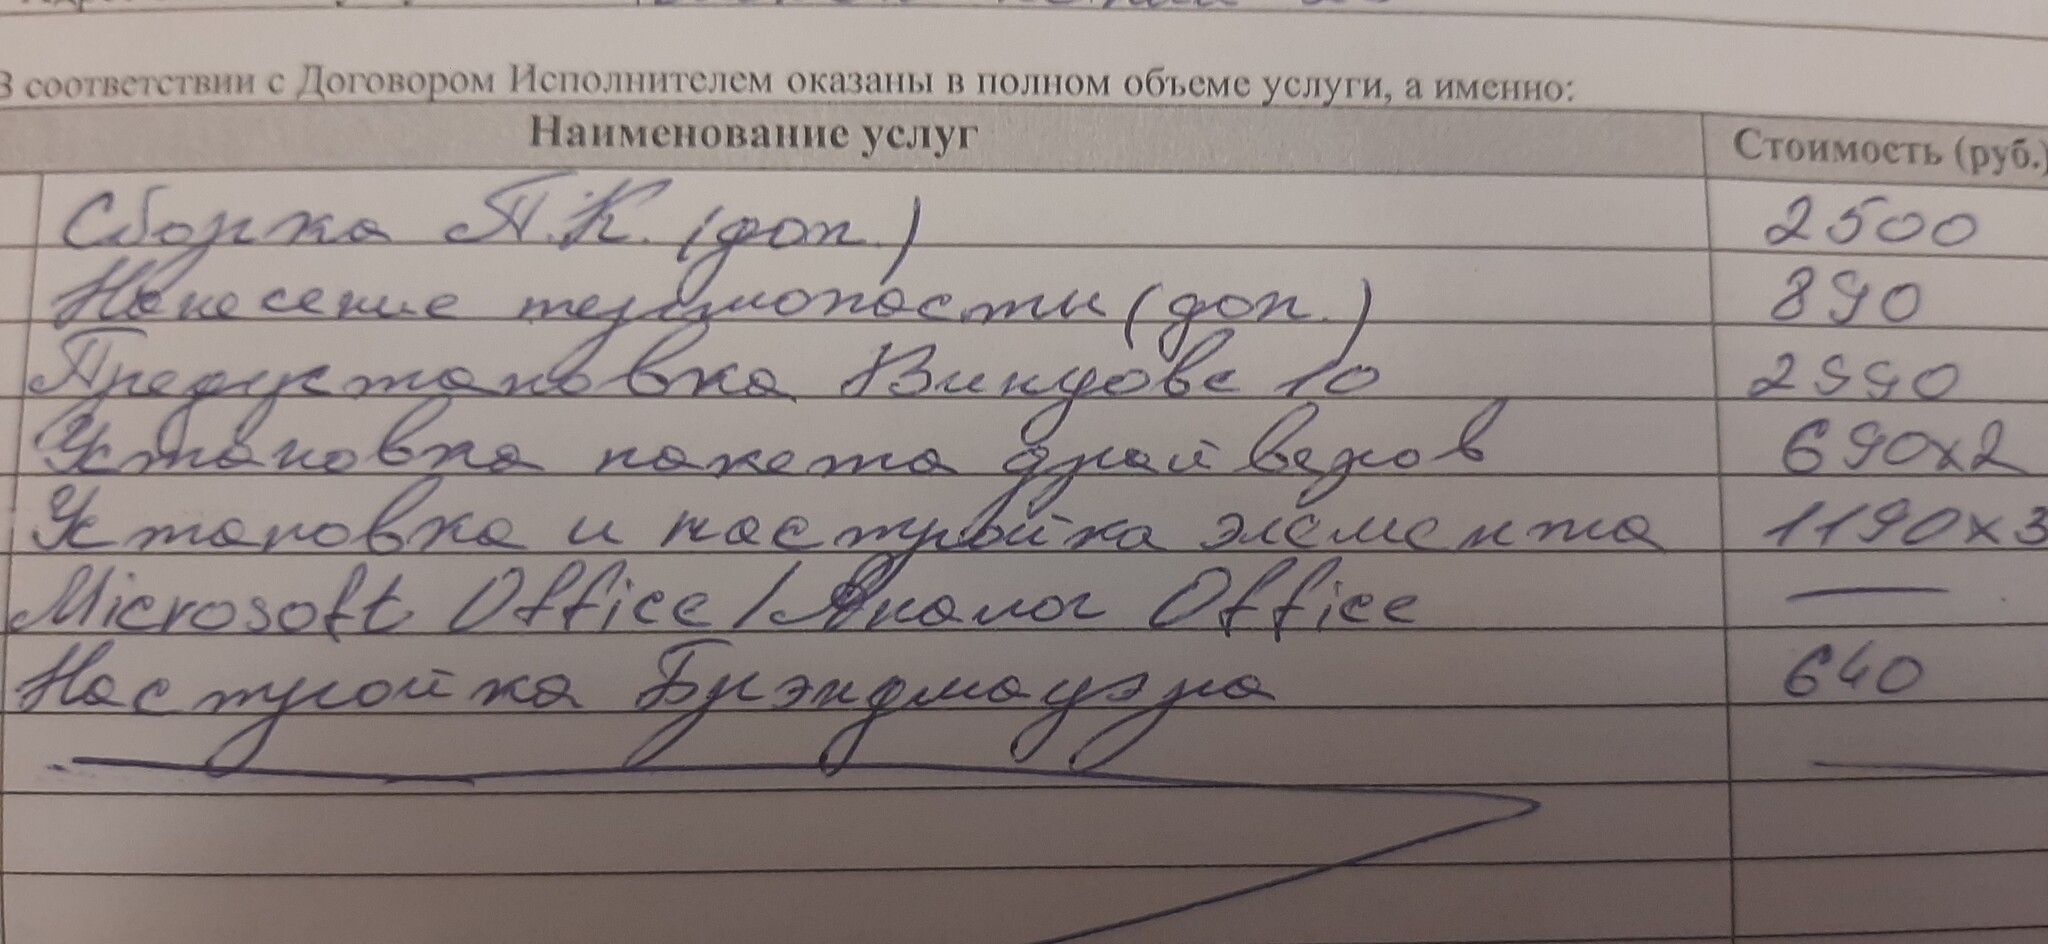 В соответствии с Договором Исполнителем оказаны в полном объеме услуги, а именно:
Наименование услуг Стоимость (руб.)
Сборка П.К. (доп.) 2500
Нанесение термопасты (доп.) 890
Предустановка Виндовс 10 2990
Установка пакета драйверов 690х2
Установка и настройка элемента 1190х3
Microsoft Office / Аналог Office —
Настройка Брэндмауэра 640